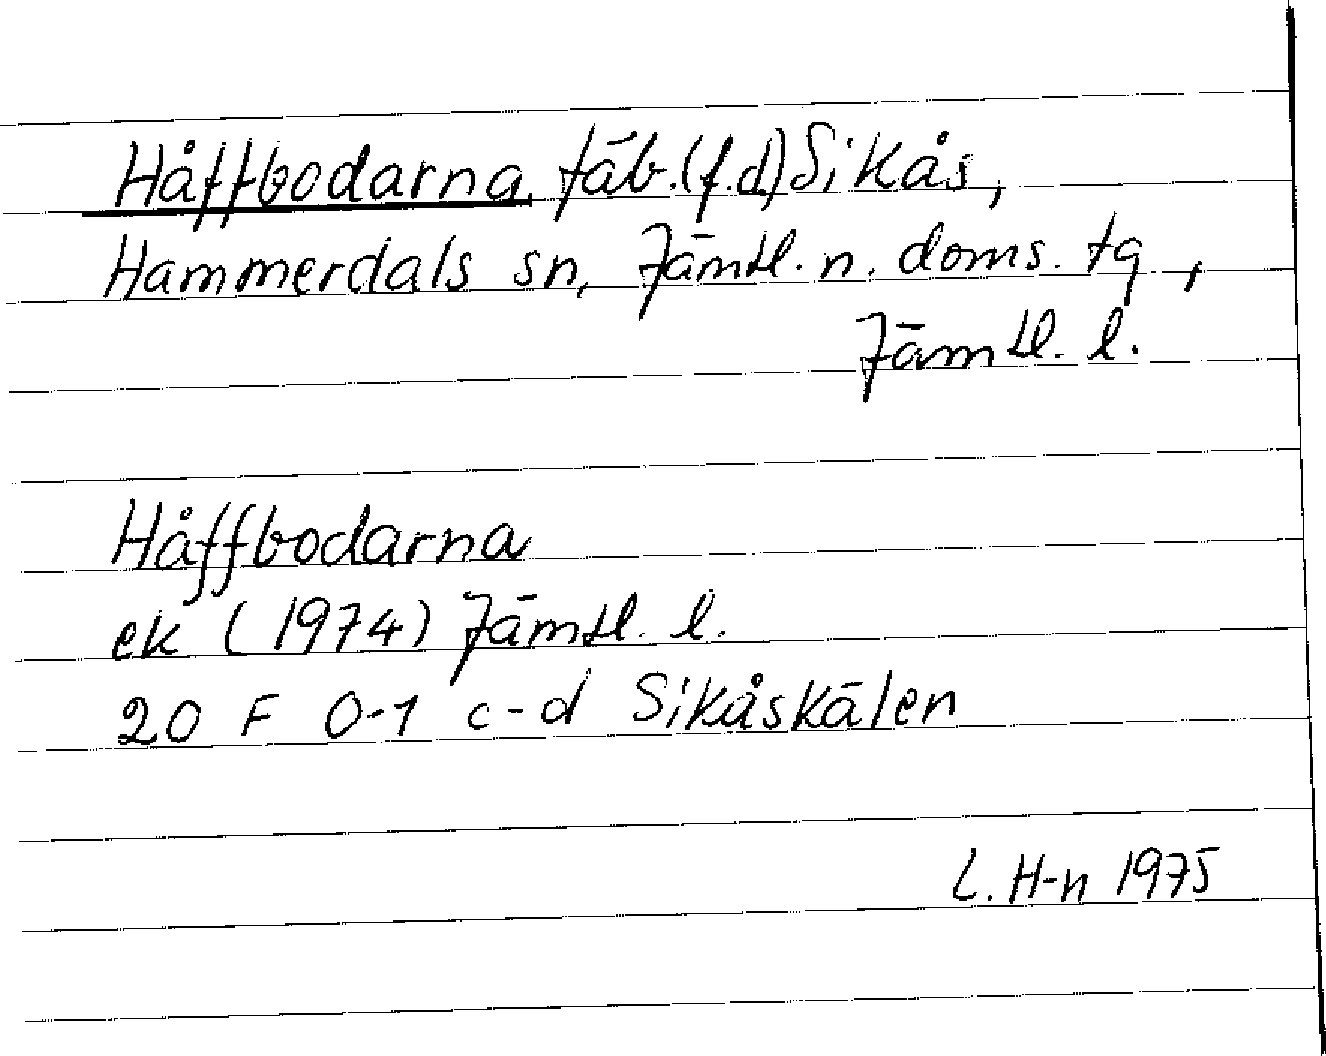 Håffbodarna, fäb. (f.d) Sikås,
Hammerdals sn, Jämtl. n. doms. tg,
Jämtl. l.
Håffbodarna
ek (1974) Jämtl. l.
20 F 0-1 c-d Sikåskälen
L. H-n 1975